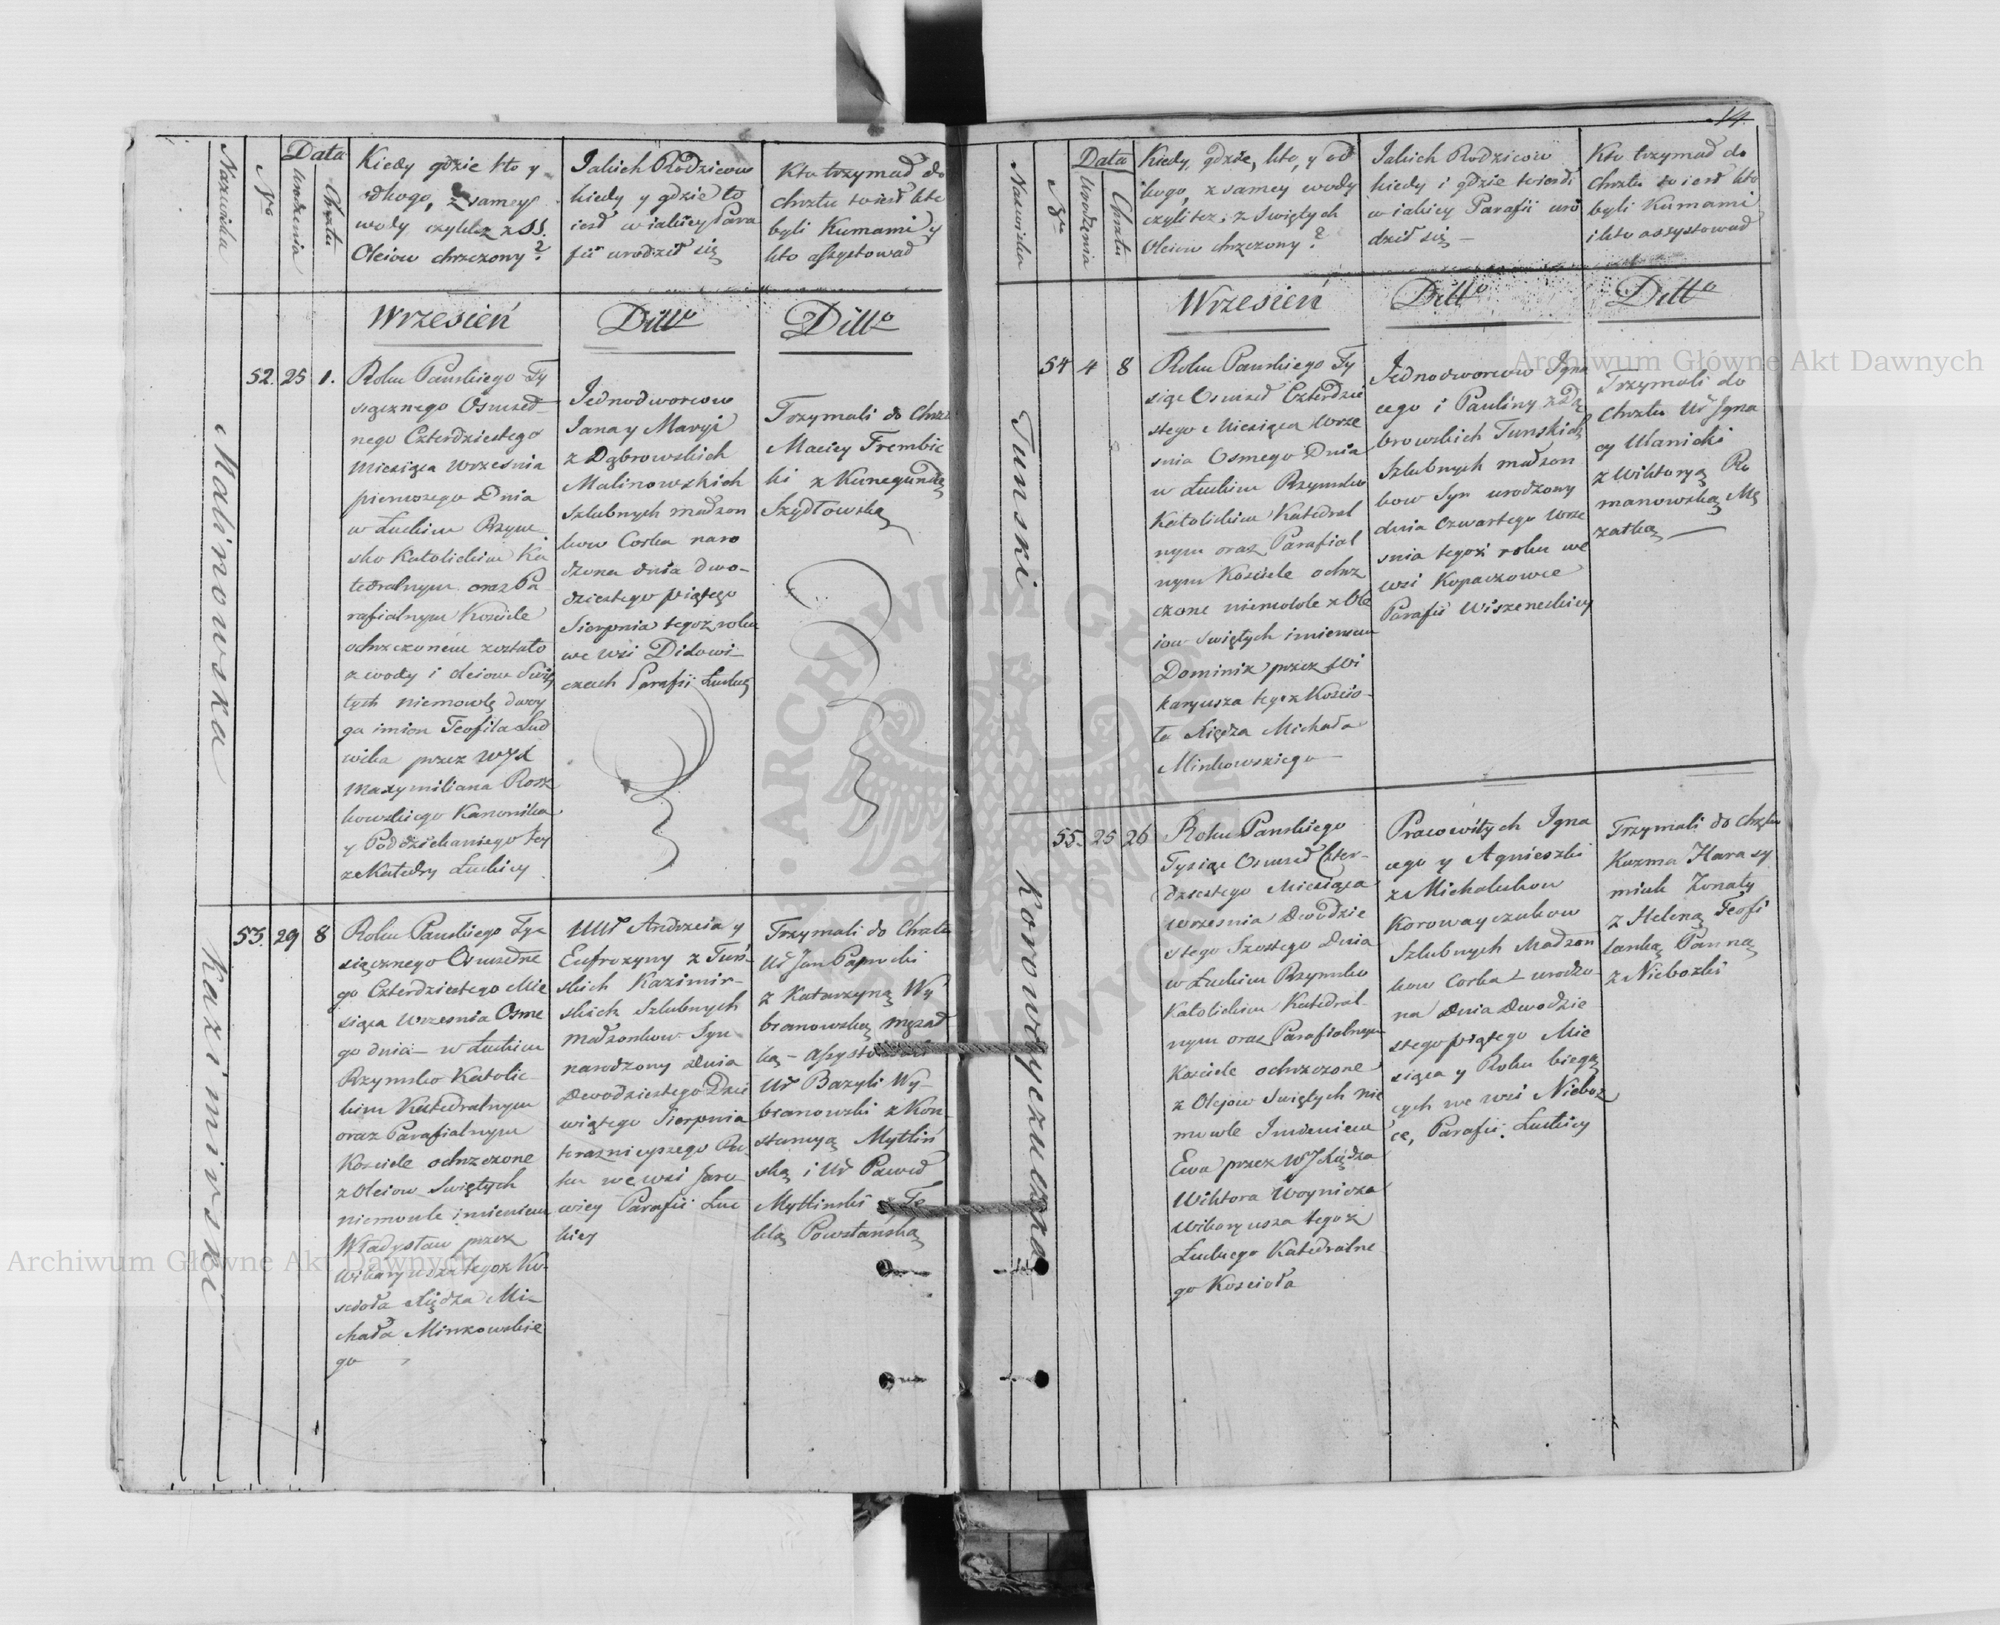 Nazwiska
Nro
Data
urodzenia
Chrztu
Kiedy gdzie kto y
od kogo, z samey
wody czylitez z SS.
Oleiow chrzczony?
Jakich Rodzicow
kiedy y gdzie to
iest w iakiey Para
fii urodził się
Kto trzymał do
chrztu to iest kto
byli Kumami y
kto assystował
Wrzesień
Ditto
Ditto
Malinowska
52.
25
1.
Roku Panskiego Ty
siącznego Osmset-
nego Czterdziestego
Miesiąca Września
pierwszego Dnia
w Łuckim Rzym
sko Katolickim Ka
tedralnym oraz Pa
rafialnym Kosciele
ochrzczonem zostało
z wody i oleiow Swię
tych niemowlę dwoy
ga imion Teofila Lud
wika przez WJX
Maxymiliana Rosz
kowskiego Kanonika
y Poddziekaniego tey
ze Katedry Łuckiey
Jednodworcow
Jana y Maryi
z Dąbrowskich
Malinowskich
szlubnych małżon
kow Corka naro
dzona dnia dwo-
dziestego piątego
Sierpnia tegoz roku
we wsi Didowi-
czach Parafii Łuckiey
Trzymali do Chrztu
Maciey Frembic
ki z Kunegundą
Szydłowską
Kazimirski
53.
29
8
Roku Panskiego Tys
siącznego Osmsetne
go Czterdziestego Mie
siąca Wrzesnia Osme
go dnia- w Łuckim
Rzymsko Katolic-
kim Katedralnym
oraz Parafialnym
Kosciele ochrzczone
z Oleiow Swiętych
niemowle imieniem
Władysław przez
Wikaryusza tegoz Ko
scioła Xiędza Mi-
chała Minkowskie
go
UUr Andrzeia y
Eufrozyny z Tuń-
skich Kazimir-
skich Szlubnych
Małżonkow Syn
narodzony dnia
Dwodziestego Dzie
wiątego Sierpnia
terazniejszego Ro-
ku we wsi Jaro
wicy Parafii Łuc
kiey
Trzymali do Chrztu
Ur Jan Paprocki
z Katarzyną Wy
branowską mężat
ką- assystowali
Ur Bazyli Wy-
branowski z Kon-
stancyą Mytliń
ską i Ur Paweł
Mytlinski z Te
klą Powstańską
14.
Nazwiska
Nro
Data
Urodzenia
Chrztu
Kiedy, gdzie, kto, y od
kogo, z samey wody
czylitez z Swiętych
Oleiow chrzczony?
Jakich Rodzicow
kiedy i gdzie to iest
w iakiey Parafii uro
dził się-
Kto trzymał do
Chrztu to iest kto
byli Kumami
i kto assystował
Wrzesień
Ditto
Ditto
Tunski
54
4
8
Roku Panskiego Ty
siąc Osmset Czterdzie
stego Miesiąca Wrze
snia Osmego Dnia
w Łuckim Rzymsko
Katolickim Katedral
nym oraz Parafial
nym Kosciele ochrz
czone niemowle z Ole
iow Swiętych imieniem
Dominik przez Wi
karyusza tegoz Koscio-
ła Xiędza Michała
Minkowskiego
Jednodworcow Igna
cego i Pauliny z Dą
browskich Tunskich
szlubnych małżon
kow Syn urodzony
dnia czwartego Wrze
snia tegoż roku we
wsi Kopaczowce
Parafii Wiszeneckiey
Trzymali do
Chrztu Ur Igna
cy Ulanicki
z Wiktoryą Ro
manowską Mę
zatką
Korowayczukowna
55.
25
26
Roku Panskiego
Tysiąc Osmset Czter-
dziestego Miesiąca
Wrzesnia Dwodzie
stego Szostego Dnia
w Łuckim Rzymsko
Katolickim Katedral
nym oraz Parafialnym
Kosciele ochrzczone
z Olejow Swiętych nie
mowle Imieniem
Ewa przez WJ Xiędza
Wiktora Woynicza
Wikaryusza tegoz
Łuckiego Katedralne
go Koscioła
Pracowitych Igna
cego y Agnieszki
z Michalukow
Korowayczukow
Szlubnych Małżon
kow Corka urodzo-
na Dnia Dwodzie
stego piątego Mie
siąca y Roku bieżą
cych we wsi Nieboz
ce, Parafii Łuckiey
Trzymali do Chrztu
Kuzma Harasy
miuk Zonaty
z Heleną Teofi
lanką Panną
z Niebozki
Archiwum Główne Akt Dawnych
Archiwum Główne Akt Dawnych